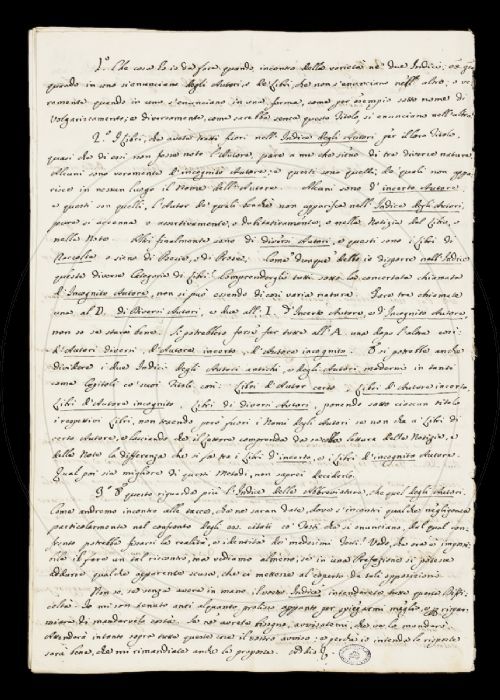 1.° Che cosa ho io da fare quando incontro della varietà ne' due Indici; o quando
quando in uno si enunciano degli Autori, e de' Libri, che non s'enunciano nell' altro, o ve-
ramente quando in uno s'enunciano in una forma, come per esempio sotto nome di
Volgarizzamento; e diversamente, come sarebbe senza questo Titolo, si enunciano nell' altro.
2.° I Libri, che avete tratti fuori nell' Indice degli Autori per il loro Titolo,
quasi che di essi non fosse noto l'Autore, pare a me che sieno di tre diverse nature.
Alcuni sono veramente d'incognito Autore; e questi sono quelli, de' quali non appa-
risce in nessun luogo il Nome dell' Autore. Alcuni sono d'incerto Autore,
e questi son quelli, l'Autor de' quali benchè non apparisca nell' Indice degli Autori,
pure si accenna o assertivamente, o dubitativamente, o nella Notizia del Libro, o
nelle Note. Altri finalmente sono di diversi Autori, e questi sono i Libri di
Raccolta o sieno di Poesie, o di Prose. Come dunque debbo io disporre nell' Indice
queste diverse Categorie di Libri? Comprendergli tutti sotto la concertata chiamata
d'Incognito Autore, non si può essendo di così varia natura. Porre tre chiamate
una al D. di Diversi Autori, e due all' I. d'Incerto Autore, e d'Incognito Autore,
non so se starà bene. Si potrebbero forse far tutte all' A. una dopo l'altra così:
d'Autori diversi, d'Autore incerto, d'Autore incognito. O si potrebbe anche
dividere i due Indici degli Autori antichi, e degli Autori moderni in tanti
come Capitoli co' suoi Titoli così: Libri d'Autor certo. Libri d'Autore incerto.
Libri d'Autore incognito. Libri di diversi Autori; ponendo sotto ciascun titolo
i respettivi Libri, non traendo però fuori i Nomi degli Autori se non da' Libri di
certo Autore, e lasciando che il lettore comprenda da se colla lettura della Notizia, e
delle Note la differenza che si fa tra i Libri d'incerto, e i Libri d'incognito Autore.
Qual poi sia migliore di questi Metodi, non saprei deciderlo.
3.° questo riguarda più l'Indice delle Abbreviature, che quel degli Autori.
Come andremo incontro alle tacce, che ne saran date, dove s'incontri qualche negligenza
particolarmente nel confronto degli es. citati co' Testi che si enunciano, dal qual con-
fronto potrebbe fissarsi la realità, e identità de' medesimi Testi? Vedo, che ora è impossi-
bile il fare un tal riscontro, ma vediamo almeno, se in una Prefazione si potesse
addurre qualche apparente scusa, che ci mettesse al coperto da tali opposizioni.
Non so, se senza avere in mano il vostro Indice, intenderete tutte queste Diffi-
coltà. Io mi son tenuto anzi alquanto prolisso appunto per spiegarmi meglio, e rispar-
miare di mandarvelo costà. Se ne avrete bisogno, avvisatemi, che ve lo manderò.
Attenderò intanto sopra tutte queste cose il vostro avviso; e perchè io intenda le risposte
sarà bene, che mi rimandiate anche le proposte. Addio